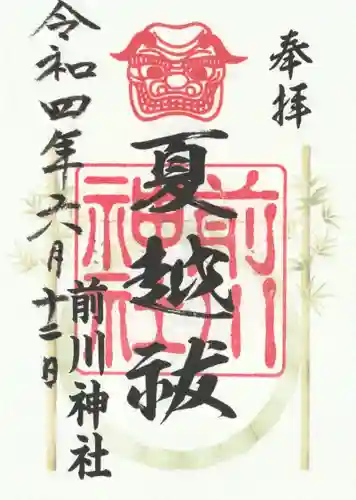 奉拝
夏越祓
前川
神社
前川神社
令和四年六月十二日